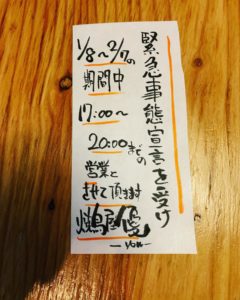 緊急事態宣言を受け
1/8〜2/7の
期間中
17:00〜
20:00までの
営業と
させて頂きます
焼鳥屋優
-you-